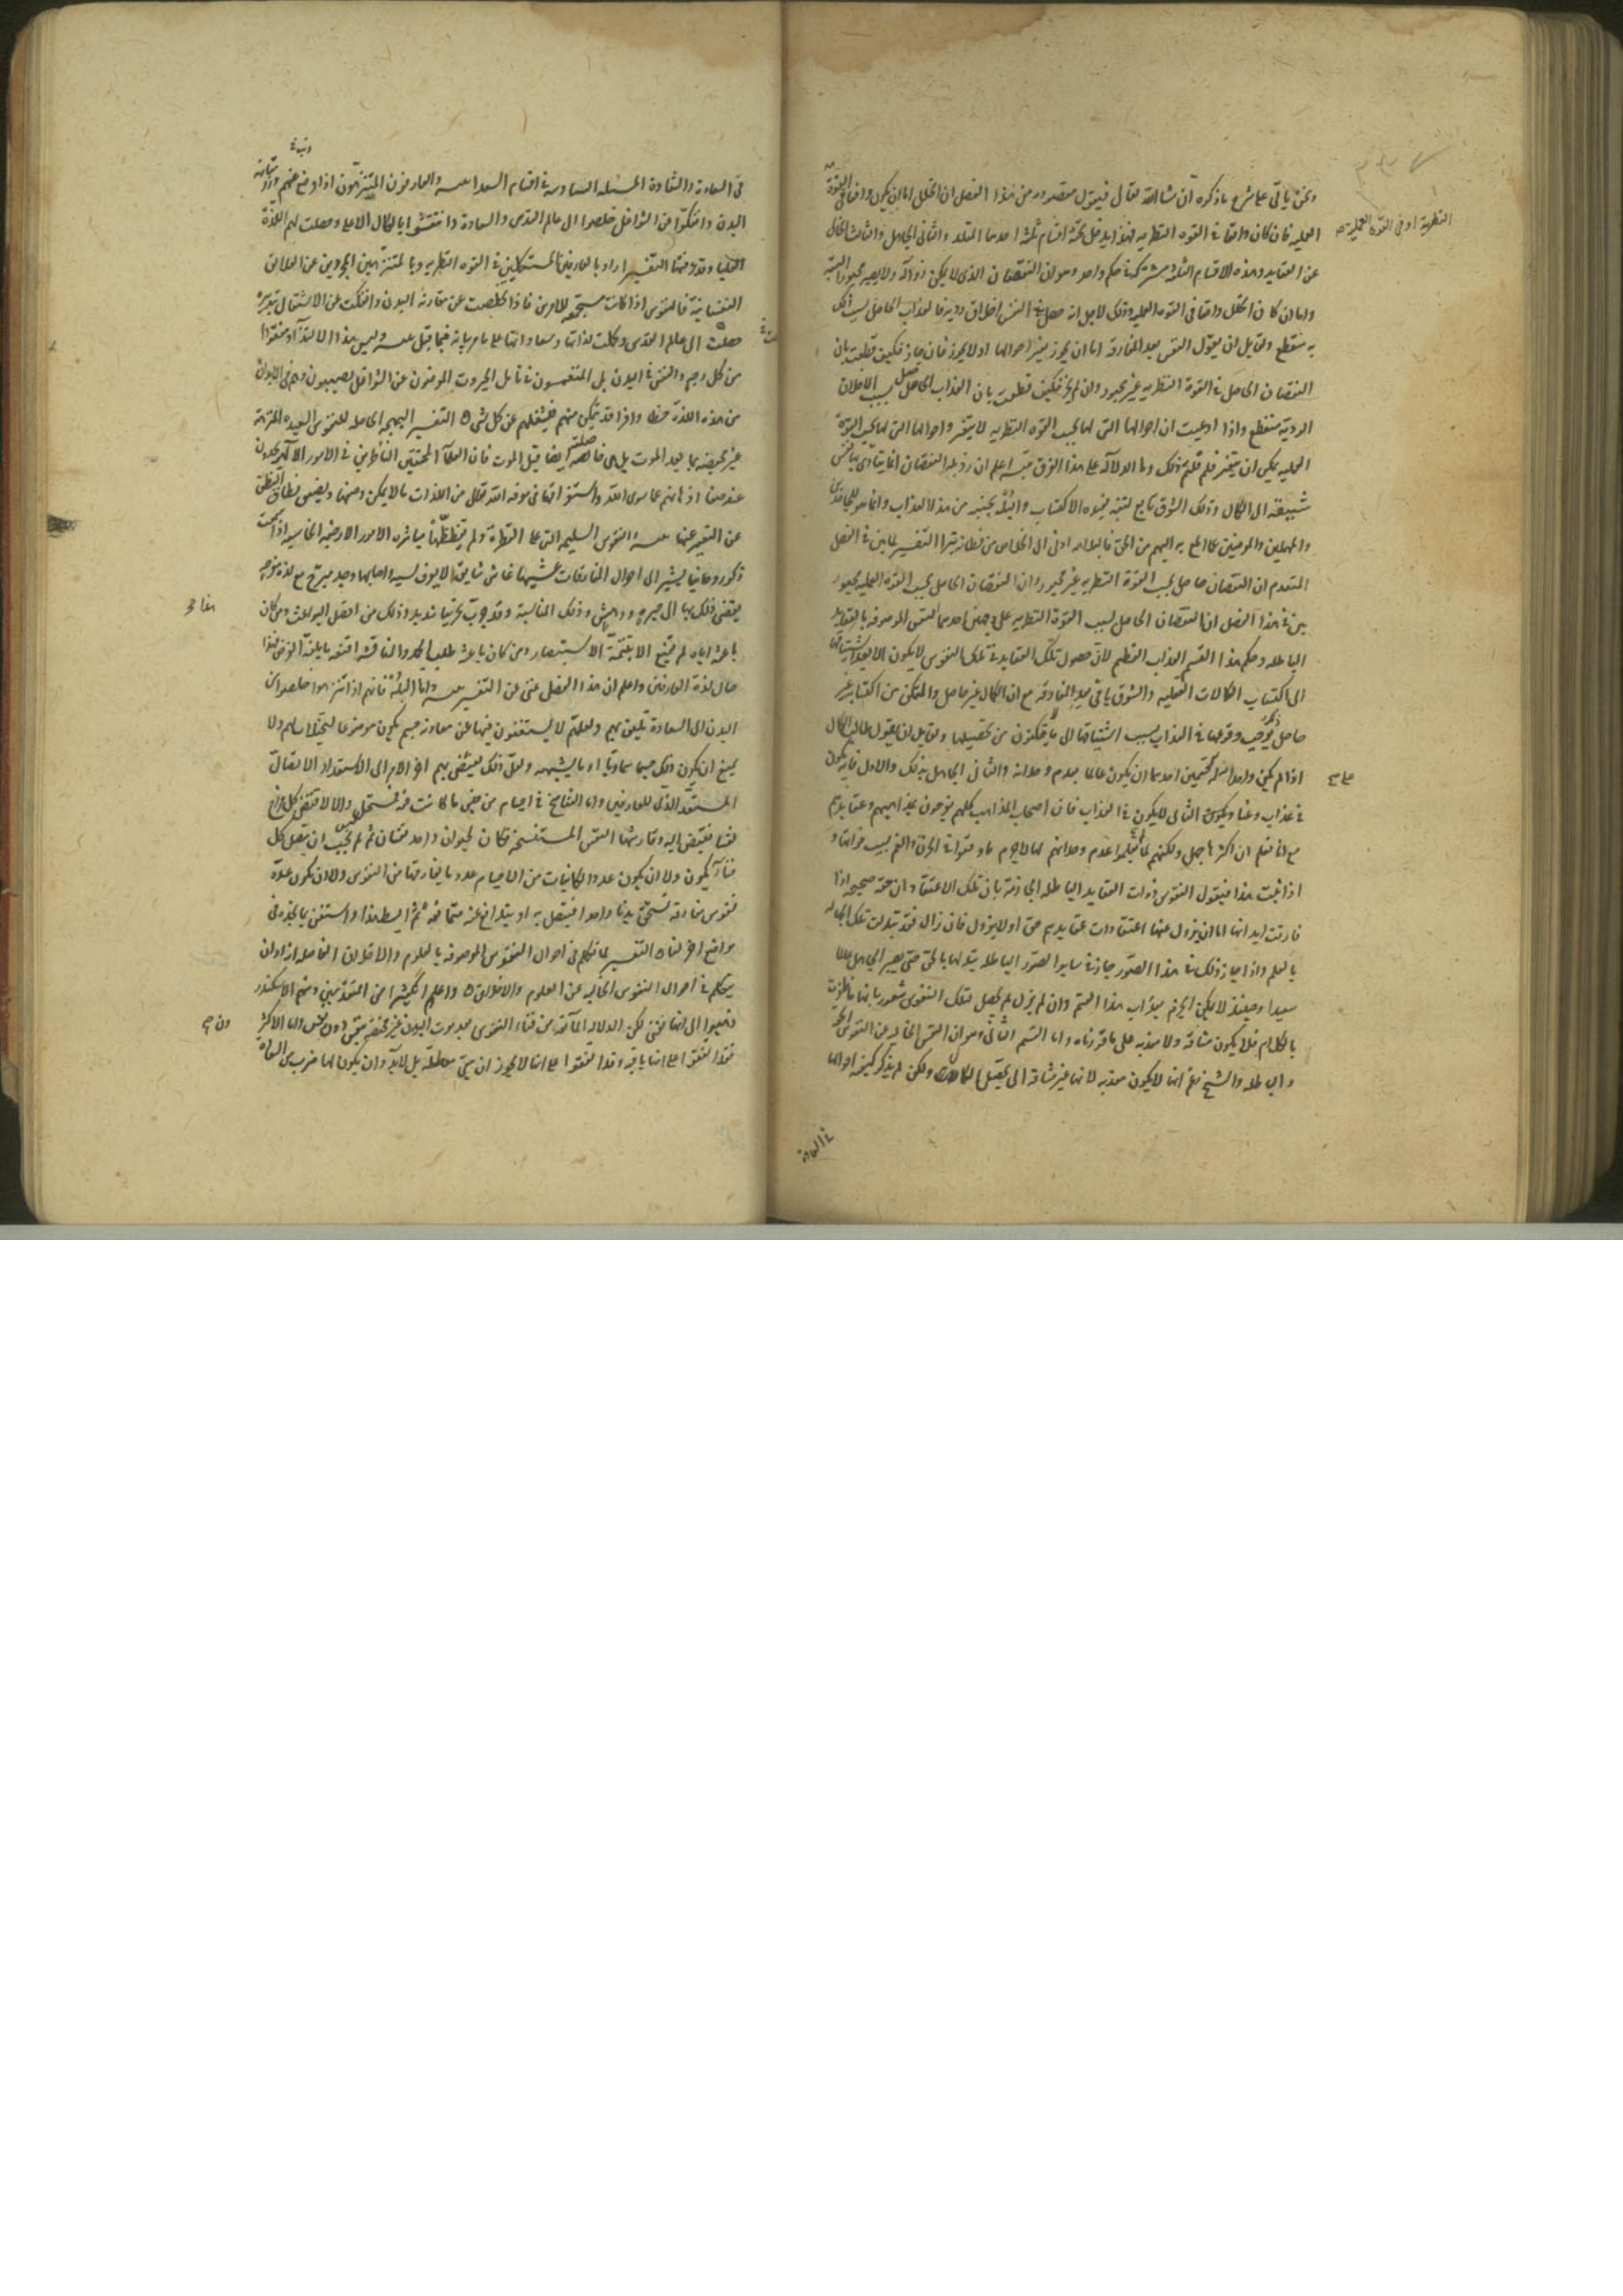 ونحن ياتى على شرح ما ذكره ان شا الله تعالى فنقول مقصوده من هذا الفصل ان الخلل اما ان يكون واقعا فى القوة
النظرية او فى القوة العملية
العمليه فان كان واقعا فى القوه النظريه فهذا يدخل تحته اقسام ثلثه احدها المقلد والثانى الجاهل والثالث الخالى
عن العقايد وهذه الاقسام الثلثه مشتركة فى حكم واحد وهو ان النقصان الذى لا يمكن زواله ولا يصير مجبورا البتة
واما ان كان الخلل واقعا فى القوه العمليه وذلك لاجل انه حصل فى النفس اخلاق رديه فالعذاب الحاصل بسبب ذلك
به منقطع ولقايل ان يقول النفس بعد المفارقه اما ان يجوز تغير احوالها او لا يجوز فان جاز فكيف قطعت بان
النقصان الحاصل فى القوة النظريه غير مجبور وان لم يجز فكيف قطعت بان العذاب الحاصل بسبب الاخلاق
الردية منقطع واذا ادعيت ان احوالها التى لها بحسب القوه النظريه لا يتغير واحوالها التى لها بحسب القوة
العمليه يمكن ان يتغير فلم قلتم ذلك وما الدلالة على هذا الفرق تنبيه اعلم ان رذيله النقصان انما يتاذى بها نفس
شيقة الى الكمال وذلك الشوق تابع لتنبه يفيده الاكتساب والبله بجنبه من هذا العذاب وانما هو للجاحدين
والمهملين والمعرضين عما المع به اليهم من الحق فالبلاهه ادنى الى الخلاص من فطانه بترا التفسير لما بين فى الفصل
المتقدم ان النقصان حاصل بحسب القوة النظريه غير مجبور وان النقصان الحاصل بحسب القوه العمليه مجبور
بين فى هذا الفصل ان النقصان الحاصل بسبب القوة النظريه على وجهين احدهما النفس الموصوفه بالعقايد
الباطله وحكم هذا القسم العذاب العظيم لان حصول تلك العقايد فى تلك النفوس لا يكون الا بعد اشتياقها
الى اكتساب الكمالات العقليه والشوق باقى بعد المفارقه مع ان الكمال غير حاصل والتمكن من اكتسابه غير
حاصل فوجب وقوعها فى العذاب بسبب اشتياقها الى ما لا يتمكنون من تحصيلها ولقايل ان يقول طالب الكمال
اذا لم يكن واجدا له قسمين احدهما ان يكون عالما بعدم وجدانه والثانى الجاهل بذلك والاول فانه يكون
فى عذاب وعنا ويكون الثانى لا يكون فى العذاب فان اصحاب المذاهب كلهم يفرحون بمذاهبهم وعقايدهم
مع انا نعلم ان اكثرها جهل ولكنهم لما لم يعلموا عدم وجدانهم لها لا جرم ما وقعوا فى الحرقة والغم بسبب فواتها و
اذا ثبت هذا فنقول النفوس ذوات العقايد الباطله الجازمة بان تلك الاعتقادات حقه صحيحه اذا
فارقت ابدانها اما ان يزول عنها اعتقادات عقايدهم حق او لا يزول فان زال فقد تبدلت تلك الجهاله
بالعلم واذا جاز ذلك فى هذا الصور جاز فى ساير الصور الباطله تبدلها بالحق حتى يصير الجاهل عالما
سعيدا وحينئذ لا يمكن الجزم بعذاب هذا القسم وان لم يزل لم يحصل لتلك النفوس شعور بانها ما ظفرت
بالكمال فلا يكون مشتاقه ولا معذبه على ما قررناه واما القسم الثانى وهو ان النفس الخاليه عن العقايد الحق
والباطله والشيخ زعم انها لا يكون معذبه لانها غير مشتاقه الى تحصيل الكمالات ولكن لم يذكر كيفية احوالها
فى السعادة
فى السعادة والشقاوة المسئله السادسه فى اقسام السعدا والعارفون المتنزهون اذا وضع عنهم درن مقارنة
البدن وانفكوا عن الشواغل خلصوا الى عالم القدس والسعادة وانتقشوا بالكمال الاعلى وحصلت لهم اللذة
العليا وقد عرفتها التفسير اراد بالعارفين المستكملين فى القوه النظريه وبالمتنزهين المجردين عن العلايق
النفسانية فالنفوس اذا كانت مستجمعة للامرين فاذا تخلصت عن مقارنه البدن وانفكت عن الاشتغال بتدبيره
خلصت الى عالم القدس وكملت لذاتها وسعاداتها على ما مر بيانه فيما قبل وليس هذا الالتذاذ مفقودا
من كل وجه والنفس فى البدن بل المنغمسون فى تامل الجبروت المعرضون عن الشواغل يصيبون وهم فى الابدان
من هذه اللذة حظا وافرا قد يتمكن منهم فيشغلهم عن كل شى التفسير البهجه الحاصله للنفوس السعيده المتنزهه
غير مختصة بما بعد الموت بل هى حاصلة ايضا قبل الموت فان العلما المحققين الناظرين فى الامور الالهيه يجدون
عند صفا اذهانهم عما سوى الله واستغراقها فى معرفه الله تعالى من اللذات ما لا يمكن وصفها ويضيق نطاق النطق
عن التعبير عنها والنفوس السليمه التى على الفطرة ولم يفظظها مباشره الامور الارضيه الجاسيه اذا سمعت
ذكرا روحانيا يشير الى احوال المفارقات غشيها غاش شايق لا يعرف سببه واصابها وجد مبرح مع لذة مفرحه
يفضى ذلك بها الى حيره ودهش وذلك للمناسبة وقد جرب تجريبا شديدا وذلك من افضل البواعث ومن كان
باعثه اياه لم يقنع الا بتتمة الاستبصار ومن كان باعثه طلب الحمد والمنافسه اقنعه ما بلغه الغرض فهذا
حال لذة العارفين واعلم ان هذا الفصل غنى عن التفسير واما البله فانهم اذا تنزهوا خلصوا من
البدن الى السعادة تليق بهم ولعلهم لا يستغنون فيها عن معاونه جسم يكون موضوعا لتخيلات لهم ولا
يمتنع ان يكون ذلك جسما سماويا او ما يشبهه ولعل ذلك يفضى بهم اخر الامر الى الاستعداد الاتصال
المستعد الذى للعارفين واما التناسخ فى اجسام من جنس ما كانت فيه فمستحيل والا لاقتضى كل مزاج
نفسا تفيض اليه وقارنتها النفس المستنسخه فكان لحيوان واحد نفسان ثم ليس يجب ان يتصل كل
فنا بكون ولا ان يكون عدد الكاينات من الاجسام عدد ما يفارقها من النفوس ولا ان يكون عدة
نفوس مفارقة تستحق بدنا واحدا فيتصل به او يتدافع عنه متمانعه ثم ابسط هذا واستعن بما تجده فى
مواضع اخر لنا التفسير لما تكلم فى احوال النفوس الموصوفه بالعلوم والاخلاق الفاضله اراد ان
يتكلم فى احوال النفوس الخاليه عن العلوم والاخلاق واعلم ان كثيرا من المتقدمين ومنهم الاسكندر
ذهبوا الى انها تفنى لكن الدلاله المانعه من فناء النفوس بعد موت البدن غير مختصة بنفس دون نفس واما الاكثر
فقد اتفقوا على انها باقيه وقد اتفقوا على انها لا يجوز ان تبقى معطلة بل لا بد وان يكون لها ضرب من السعاده